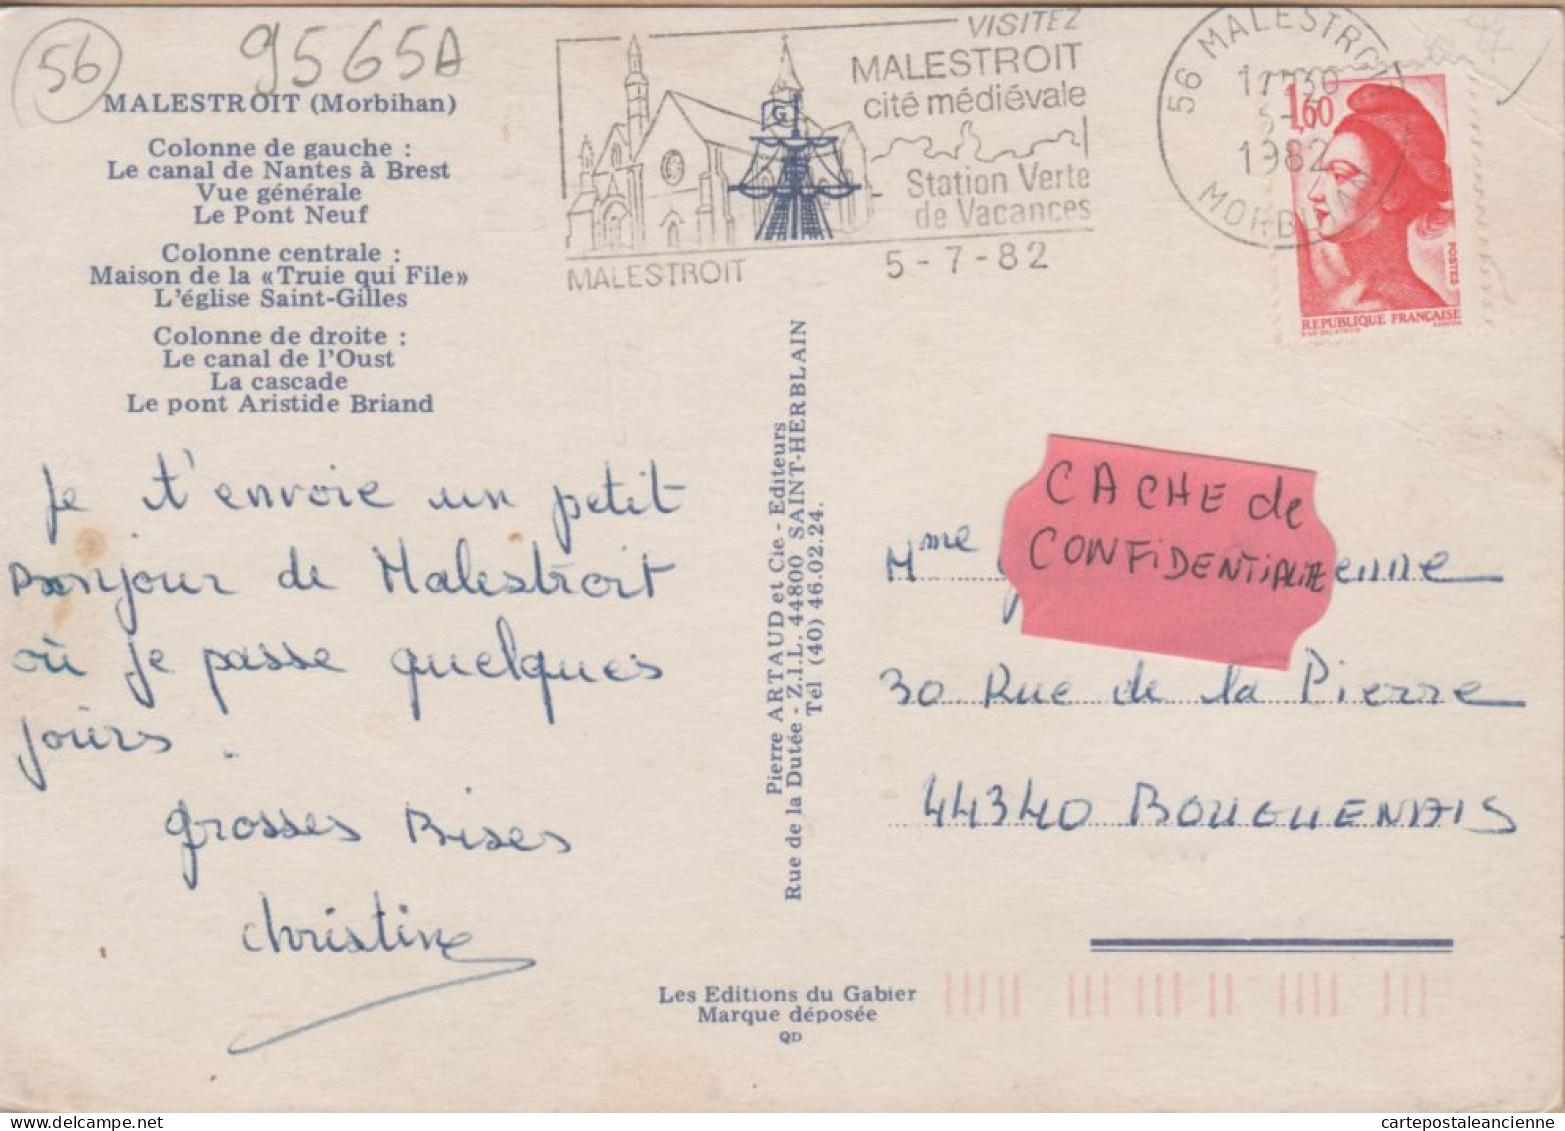 56
9565A
MALESTROIT (Morbihan)
Colonne de gauche :
Le canal de Nantes à Brest
Vue générale
Le Pont Neuf
Colonne centrale :
Maison de la «Truie qui File»
L'église Saint-Gilles
Colonne de droite :
Le canal de l'Oust
La cascade
Le pont Aristide Briand
Je t'envoie un petit
Bonjour de Malestroit
où je passe quelques
jours.
grosses Bises
christine
VISITEZ
MALESTROIT
cité médiévale
Station Verte
de Vacances
MALESTROIT
5-7-82
56 MALESTROIT
1982
MORBIHAN
1,60
POSTES
REPUBLIQUE FRANÇAISE
Pierre ARTAUD et Cie - Editeurs
Rue de la Dutée - Z.I.L. 44800 SAINT-HERBLAIN
Tél (40) 46.02.24.
Les Editions du Gabier
Marque déposée
QD
G
CACHE de
CONFIDENTIALITE
Mme enne
30 Rue de la Pierre
44340 BOUGUENAIS
cartepostaleancienne